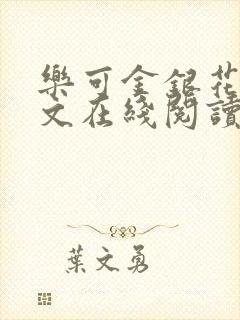 樂可金銀花
文在綫閱讀
葉文勇